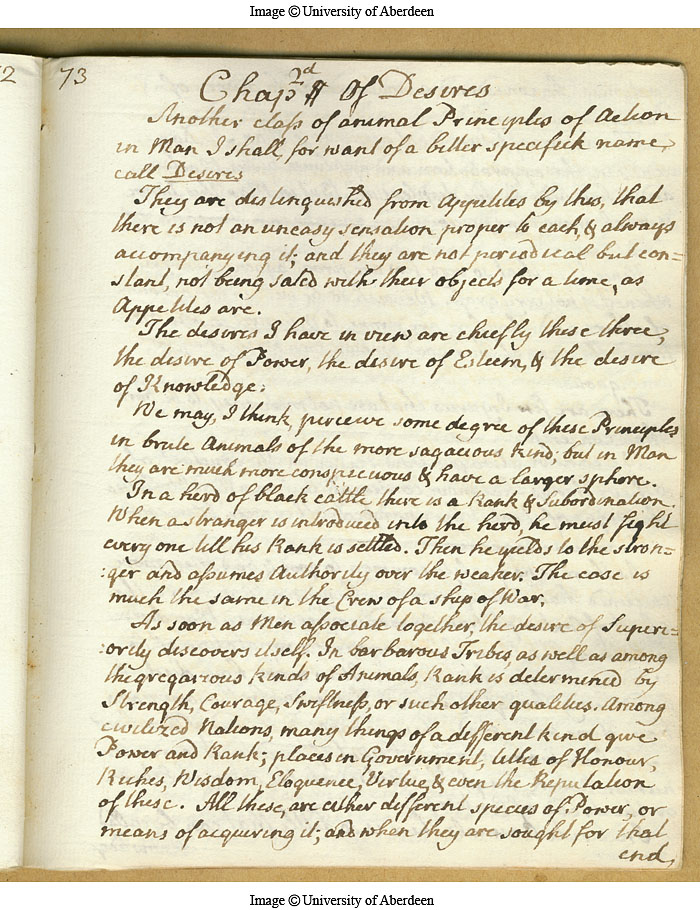 Image © University of Aberdeen
2
73
Chap 2d Of Desires
Another class of animal Principles of Action
in Man I shall, for want of a better specifick name,
call Desires
They are distinguished from Appetites by this, that
there is not an uneasy sensation proper to each, & always
accompanying it; and they are not periodical but con=
stant, not being sated with their objects for a time, as
Appetites are.
The desires I have in view are chiefly these three,
the desire of Power, the desire of Esteem, & the desire
of Knowledge.
We may, I think, perceive some degree of these Principles
in brute Animals of the more sagacious kind; but in Man
they are much more conspicuous & have a larger sphere.
In a herd of black cattle there is a Rank & Subordination.
When a stranger is introduced into the herd, he must fight
every one till his Rank is settled. Then he yields to the stron=
:ger and assumes Authority over the weaker. The case is
much the same in the Crew of a ship of War.
As soon as Men associate together, the desire of Superi=
:ority discovers itself. In barbarous Tribes, as well as among
the gregarious kinds of Animals, Rank is determined by
Strength, Courage, Swiftness, or such other qualities. Among
civilized Nations, many things of a different kind give
Power and Rank; places in Government, titles of Honour,
Riches, Wisdom, Eloquence, Virtue, & even the Reputation
of these. All these, are either different species of Power, or
means of acquiring it; and when they are sought for that
end,
Image © University of Aberdeen